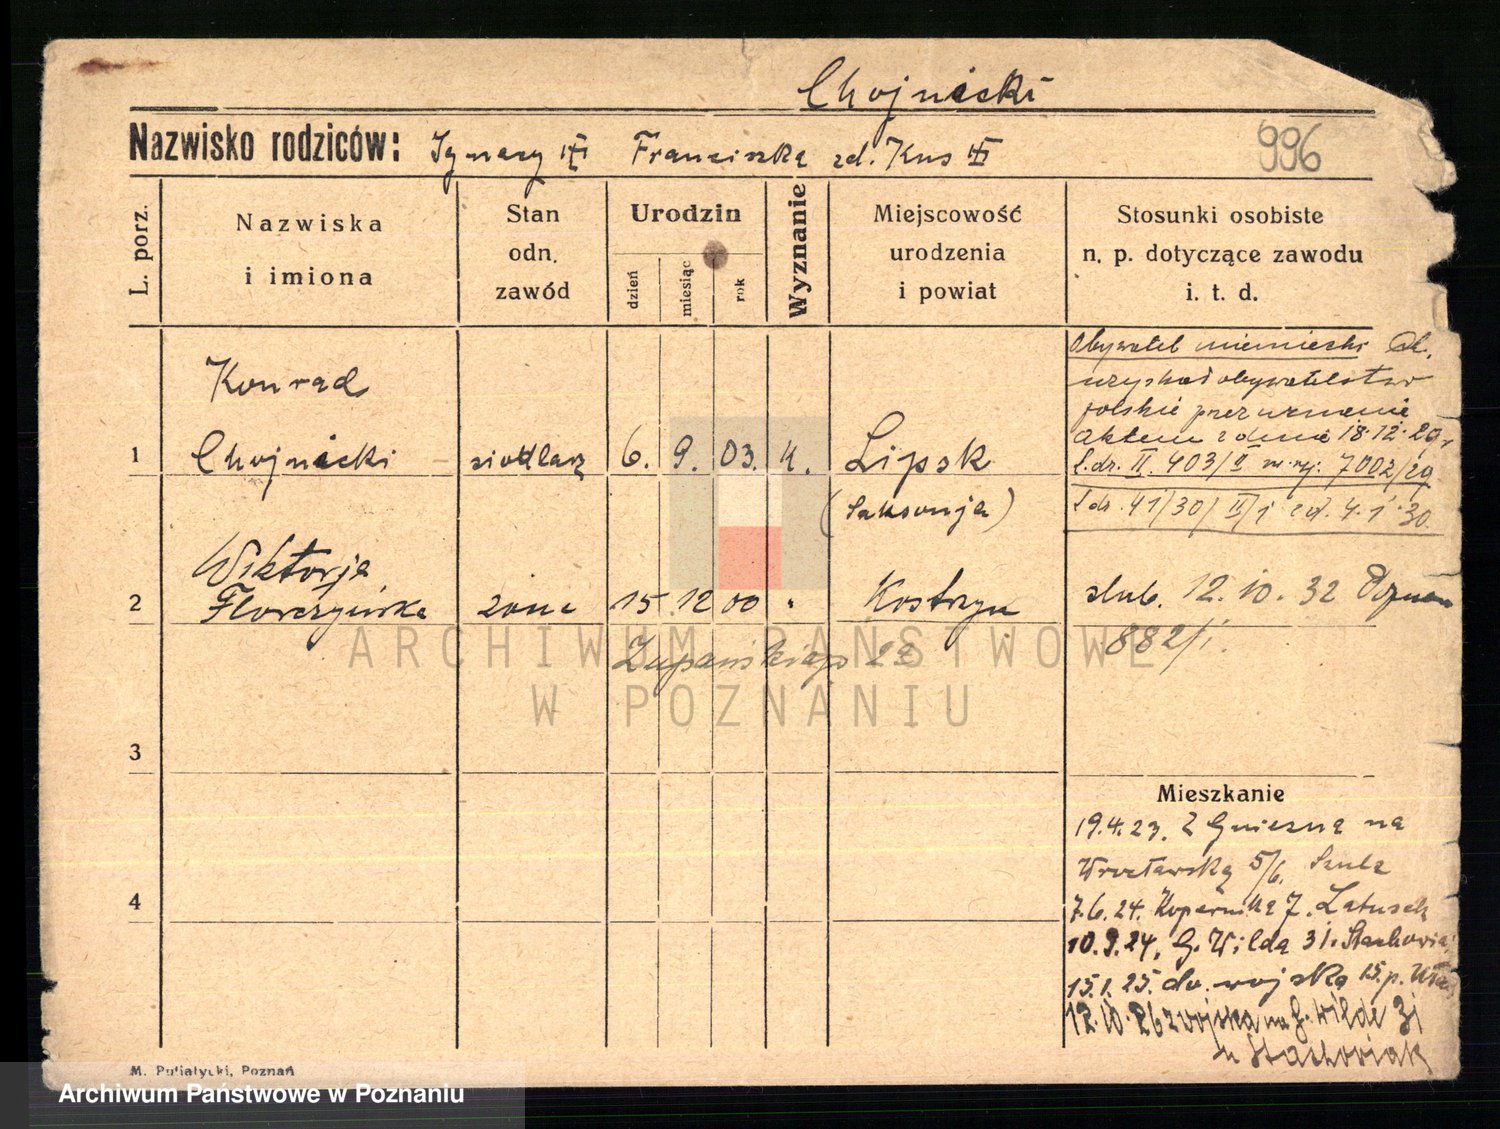 Chojnicki
Nazwisko rodziców: Ignacy Franciszka zd. Kus
996
L. porz.
Nazwiska
i imiona
Stan
odn.
zawód
Urodzin
dzień
miesiąc
rok
Wyznanie
Miejscowość
urodzenia
i powiat
Stosunki osobiste
n. p. dotyczące zawodu
i. t. d.
1
Konrad
Chojnicki
siodlarz
6. 9. 03. k.
Lipsk
(Saksonja)
Obywatel niemiecki
uzyskał obywatelstwo
polskie przez uznanie
Aktem z dnia 18.12.29 r
L.dz. II. 403/II 7002/29
L.dz. 41/30/II/1 z d. 4.1.30.
2
Wiktorja
Florczyńska
żona
15 12 00 "
Kostrzyn
ślub. 12.10.32 Poznań
882/I.
Żupańskiego
3
4
Mieszkanie
19.4.23. Z Gniezna na
Wrocławską 5/6. Szulz
7.6.24. Kopernika 7. Latusek
10.9.24. G. Wilda 31. Stachowiak
15.1.25. do wojska 15.p. Ułan
12.10.26 z wojska na G. Wildę 31
u Stachowiak
M. Putiatycki, Poznań
ARCHIWUM PAŃSTWOWE
W POZNANIU
Archiwum Państwowe w Poznaniu